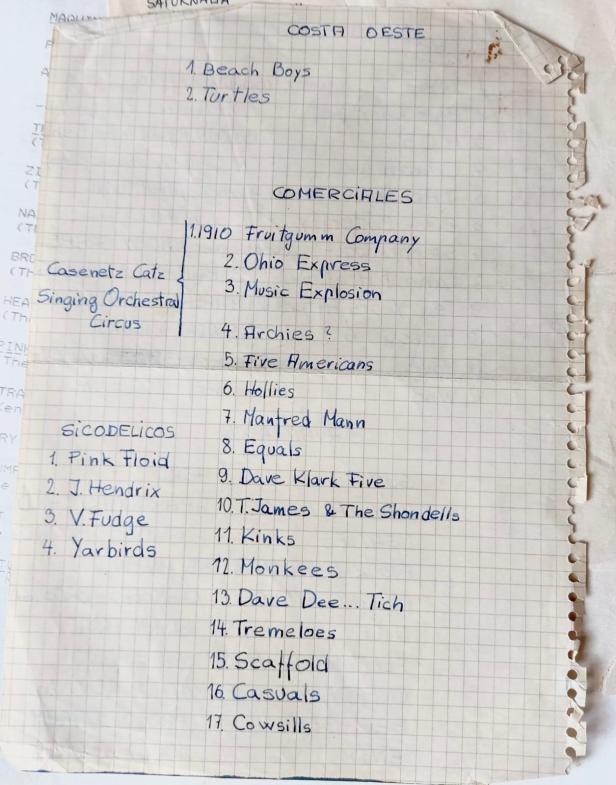 SATURNALIA
COSTA OESTE
1. Beach Boys
2. Turtles
COMERCIALES
1.1910 Fruitgumm Company
2. Ohio Express
3. Music Explosion
Casenetz Catz
Singing Orchestral
Circus
4. Archies ?
5. Five Americans
6. Hollies
7. Manfred Mann
8. Equals
9. Dave Klark Five
10. T. James & The Shondells
11. Kinks
12. Monkees
13. Dave Dee... Tich
14. Tremeloes
15. Scaffold
16. Casuals
17. Cowsills
SiCODELICOS
1. Pink Floid
2. J. Hendrix
3. V. Fudge
4. Yarbirds